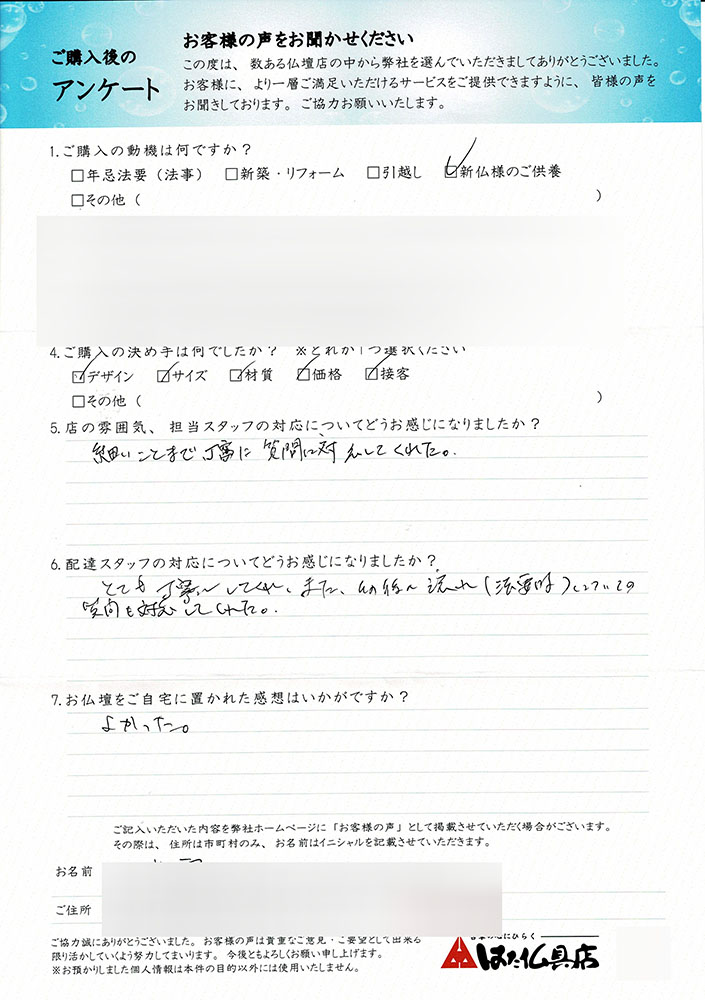 ご購入後の
アンケート
お客様の声をお聞かせください
この度は、数ある仏壇店の中から弊社を選んでいただきましてありがとうございました。
お客様に、より一層ご満足いただけるサービスをご提供できますように、皆様の声を
お聞きしております。ご協力お願いいたします。
1.ご購入の動機は何ですか？
□年忌法要（法事） □新築・リフォーム □引越し ☑新仏様のご供養
□その他（ ）
4.ご購入の決め手は何でしたか？ ※どれか1つ選択ください
☑デザイン ☑サイズ ☑材質 ☑価格 ☑接客
□その他（ ）
5.店の雰囲気、担当スタッフの対応についてどうお感じになりましたか？
細いことまで丁寧に質問に対応してくれた。
6.配達スタッフの対応についてどうお感じになりましたか？
とても丁寧にしてくれ、また、の後の流れ（法要時）についての
質問も対応してくれた。
7.お仏壇をご自宅に置かれた感想はいかがですか？
よかった。
ご記入いただいた内容を弊社ホームページに「お客様の声」として掲載させていただく場合がございます。
その際は、住所は市町村のみ、お名前はイニシャルを記載させていただきます。
お名前
ご住所
ご協力誠にありがとうございました。お客様の声は貴重なご意見・ご要望として出来る
限り活かしていくよう努力してまいります。今後ともよろしくお願い申し上げます。
※お預かりしました個人情報は本件の目的以外には使用いたしません。
にひらく
はた仏具店